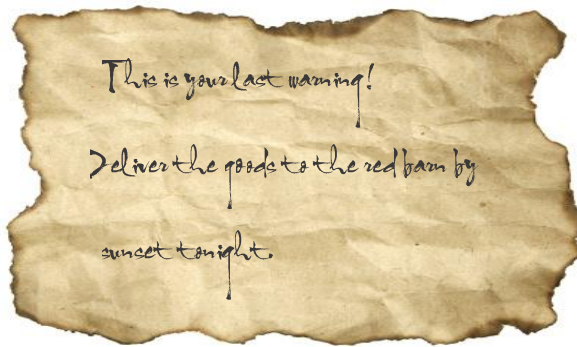 This is your last warning!
Deliver the goods to the red barn by
sunset tonight.